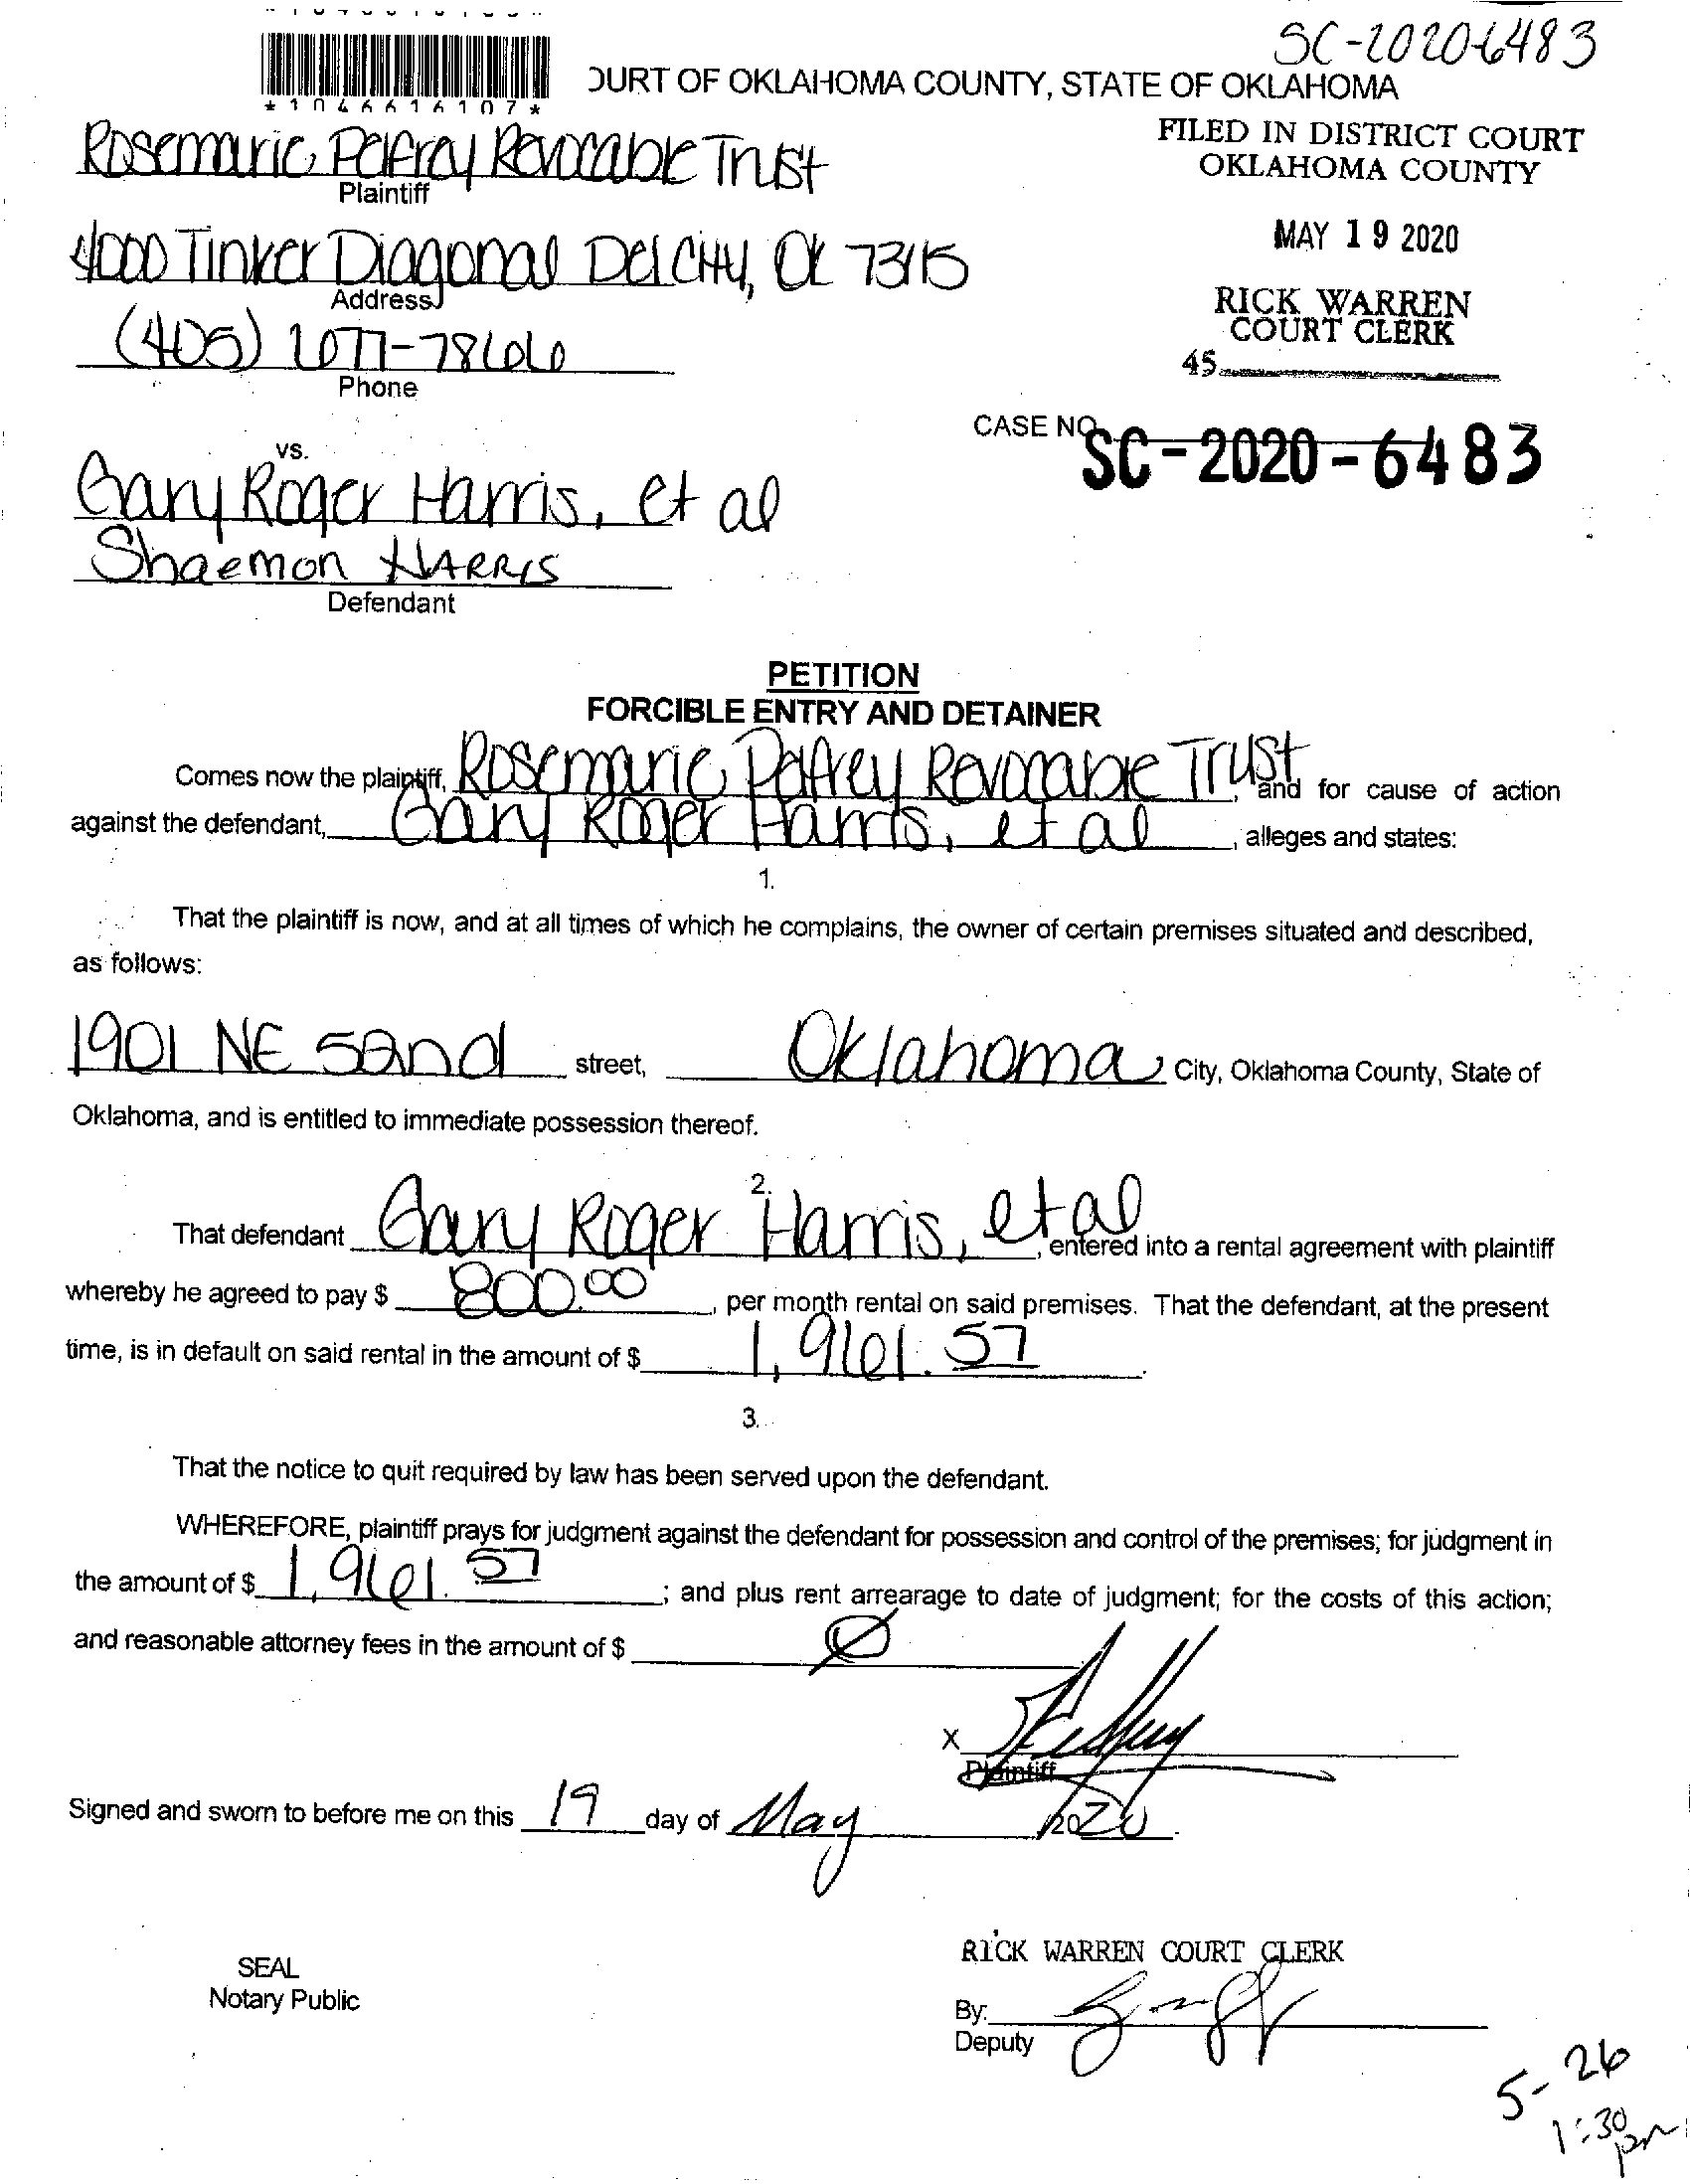 SC-2020-6483
OURT OF OKLAHOMA COUNTY, STATE OF OKLAHOMA
*1046616107*
FILED IN DISTRICT COURT
OKLAHOMA COUNTY
Rosemarie Palfrey Revocable Trust
Plaintiff
MAY 19 2020
4000 Tinker Diagonal Del City, OK 73115
Address
RICK WARREN
COURT CLERK
(405) 677-7866
45
Phone
CASE NO. SC-2020-6483
vs.
Gary Roger Harris, et al
Shaemon HARRIS
Defendant
PETITION
FORCIBLE ENTRY AND DETAINER
Comes now the plaintiff, Rosemarie Palfrey Revocable Trust, and for cause of action
against the defendant, Gary Roger Harris, et al, alleges and states:
1.
That the plaintiff is now, and at all times of which he complains, the owner of certain premises situated and described,
as follows:
1901 NE 52nd street, Oklahoma City, Oklahoma County, State of
Oklahoma, and is entitled to immediate possession thereof.
2.
That defendant Gary Roger Harris, et al, entered into a rental agreement with plaintiff
whereby he agreed to pay $ 800.00, per month rental on said premises. That the defendant, at the present
time, is in default on said rental in the amount of $ 1,961.57.
3.
That the notice to quit required by law has been served upon the defendant.
WHEREFORE, plaintiff prays for judgment against the defendant for possession and control of the premises; for judgment in
the amount of $ 1,961.57; and plus rent arrearage to date of judgment; for the costs of this action;
and reasonable attorney fees in the amount of $ Ø
X
Plaintiff
Signed and sworn to before me on this 19 day of May, 2020.
RICK WARREN COURT CLERK
SEAL
Notary Public
By:
Deputy
5-26
1:30 pm